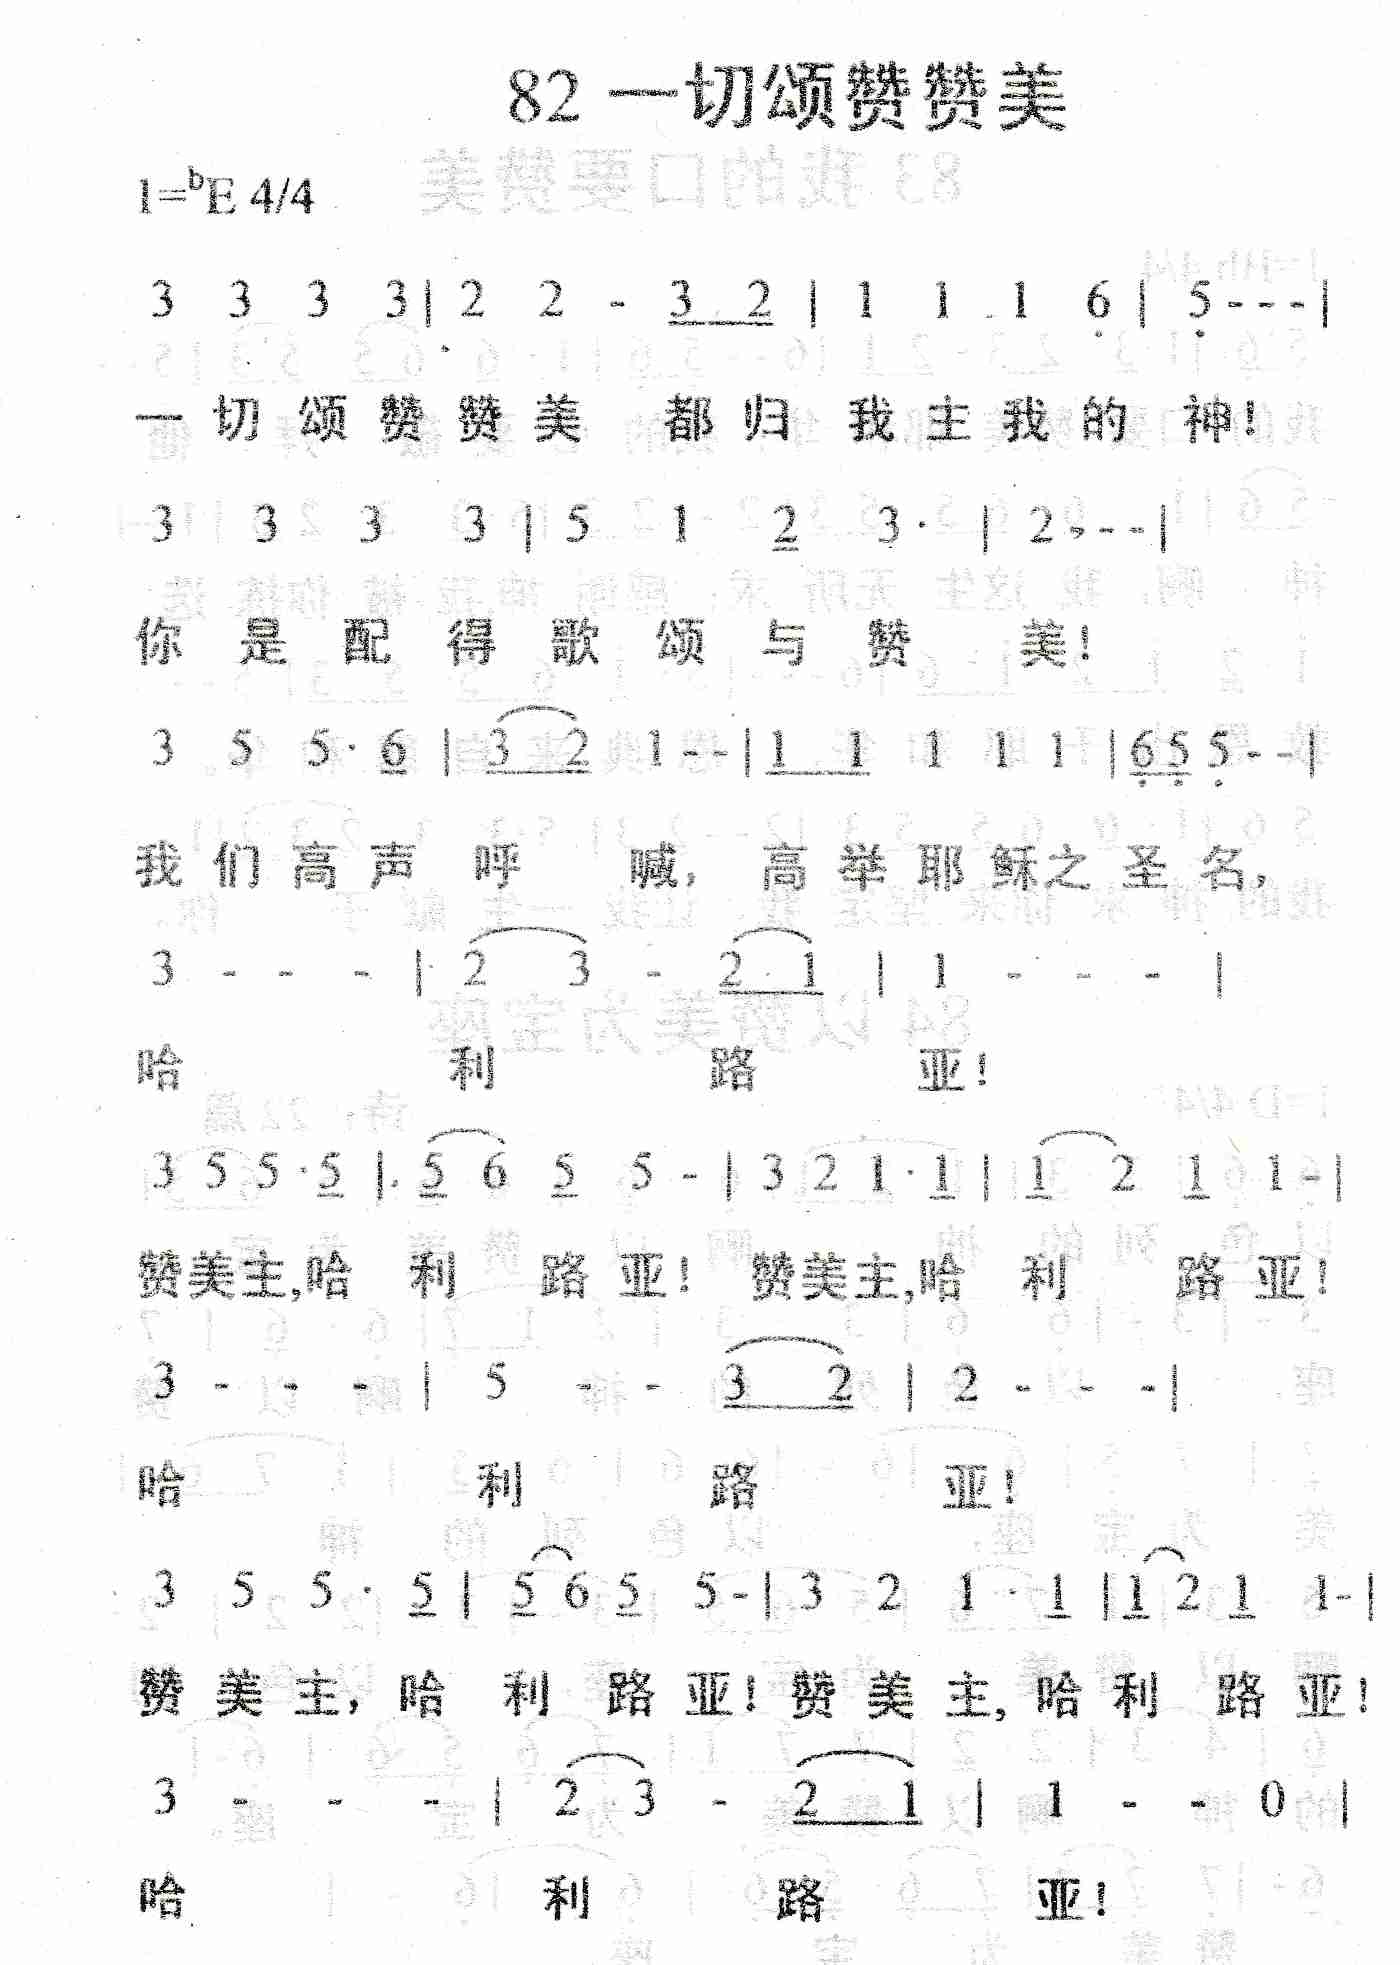 82 一切颂赞赞美
1=bE 4/4
3 3 3 3 | 2 2 - 3 2 | 1 1 1 6 | 5 - - - |
一 切 颂 赞 赞 美 都 归 我 主 我 的 神！
3 3 3 3 | 5 1 2 3 · | 2 - - - |
你 是 配 得 歌 颂 与 赞 美！
3 5 5 · 6 | 3 2 1 - - | 1 1 1 1 1 | 6 5 5 - - |
我 们 高 声 呼 喊， 高 举 耶 稣 之 圣 名，
3 - - - | 2 3 - 2 1 | 1 - - - |
哈 利 路 亚！
3 5 5 · 5 | 5 6 5 5 - | 3 2 1 · 1 | 1 2 1 1 - |
赞美主,哈 利 路 亚！ 赞美主,哈 利 路 亚！
3 - - - | 5 - - 3 2 | 2 - - - |
哈 利 路 亚！
3 5 5 · 5 | 5 6 5 5 - | 3 2 1 · 1 | 1 2 1 1 - |
赞 美 主， 哈 利 路 亚！ 赞 美 主, 哈 利 路 亚！
3 - - - | 2 3 - 2 1 | 1 - - 0 |
哈 利 路 亚！